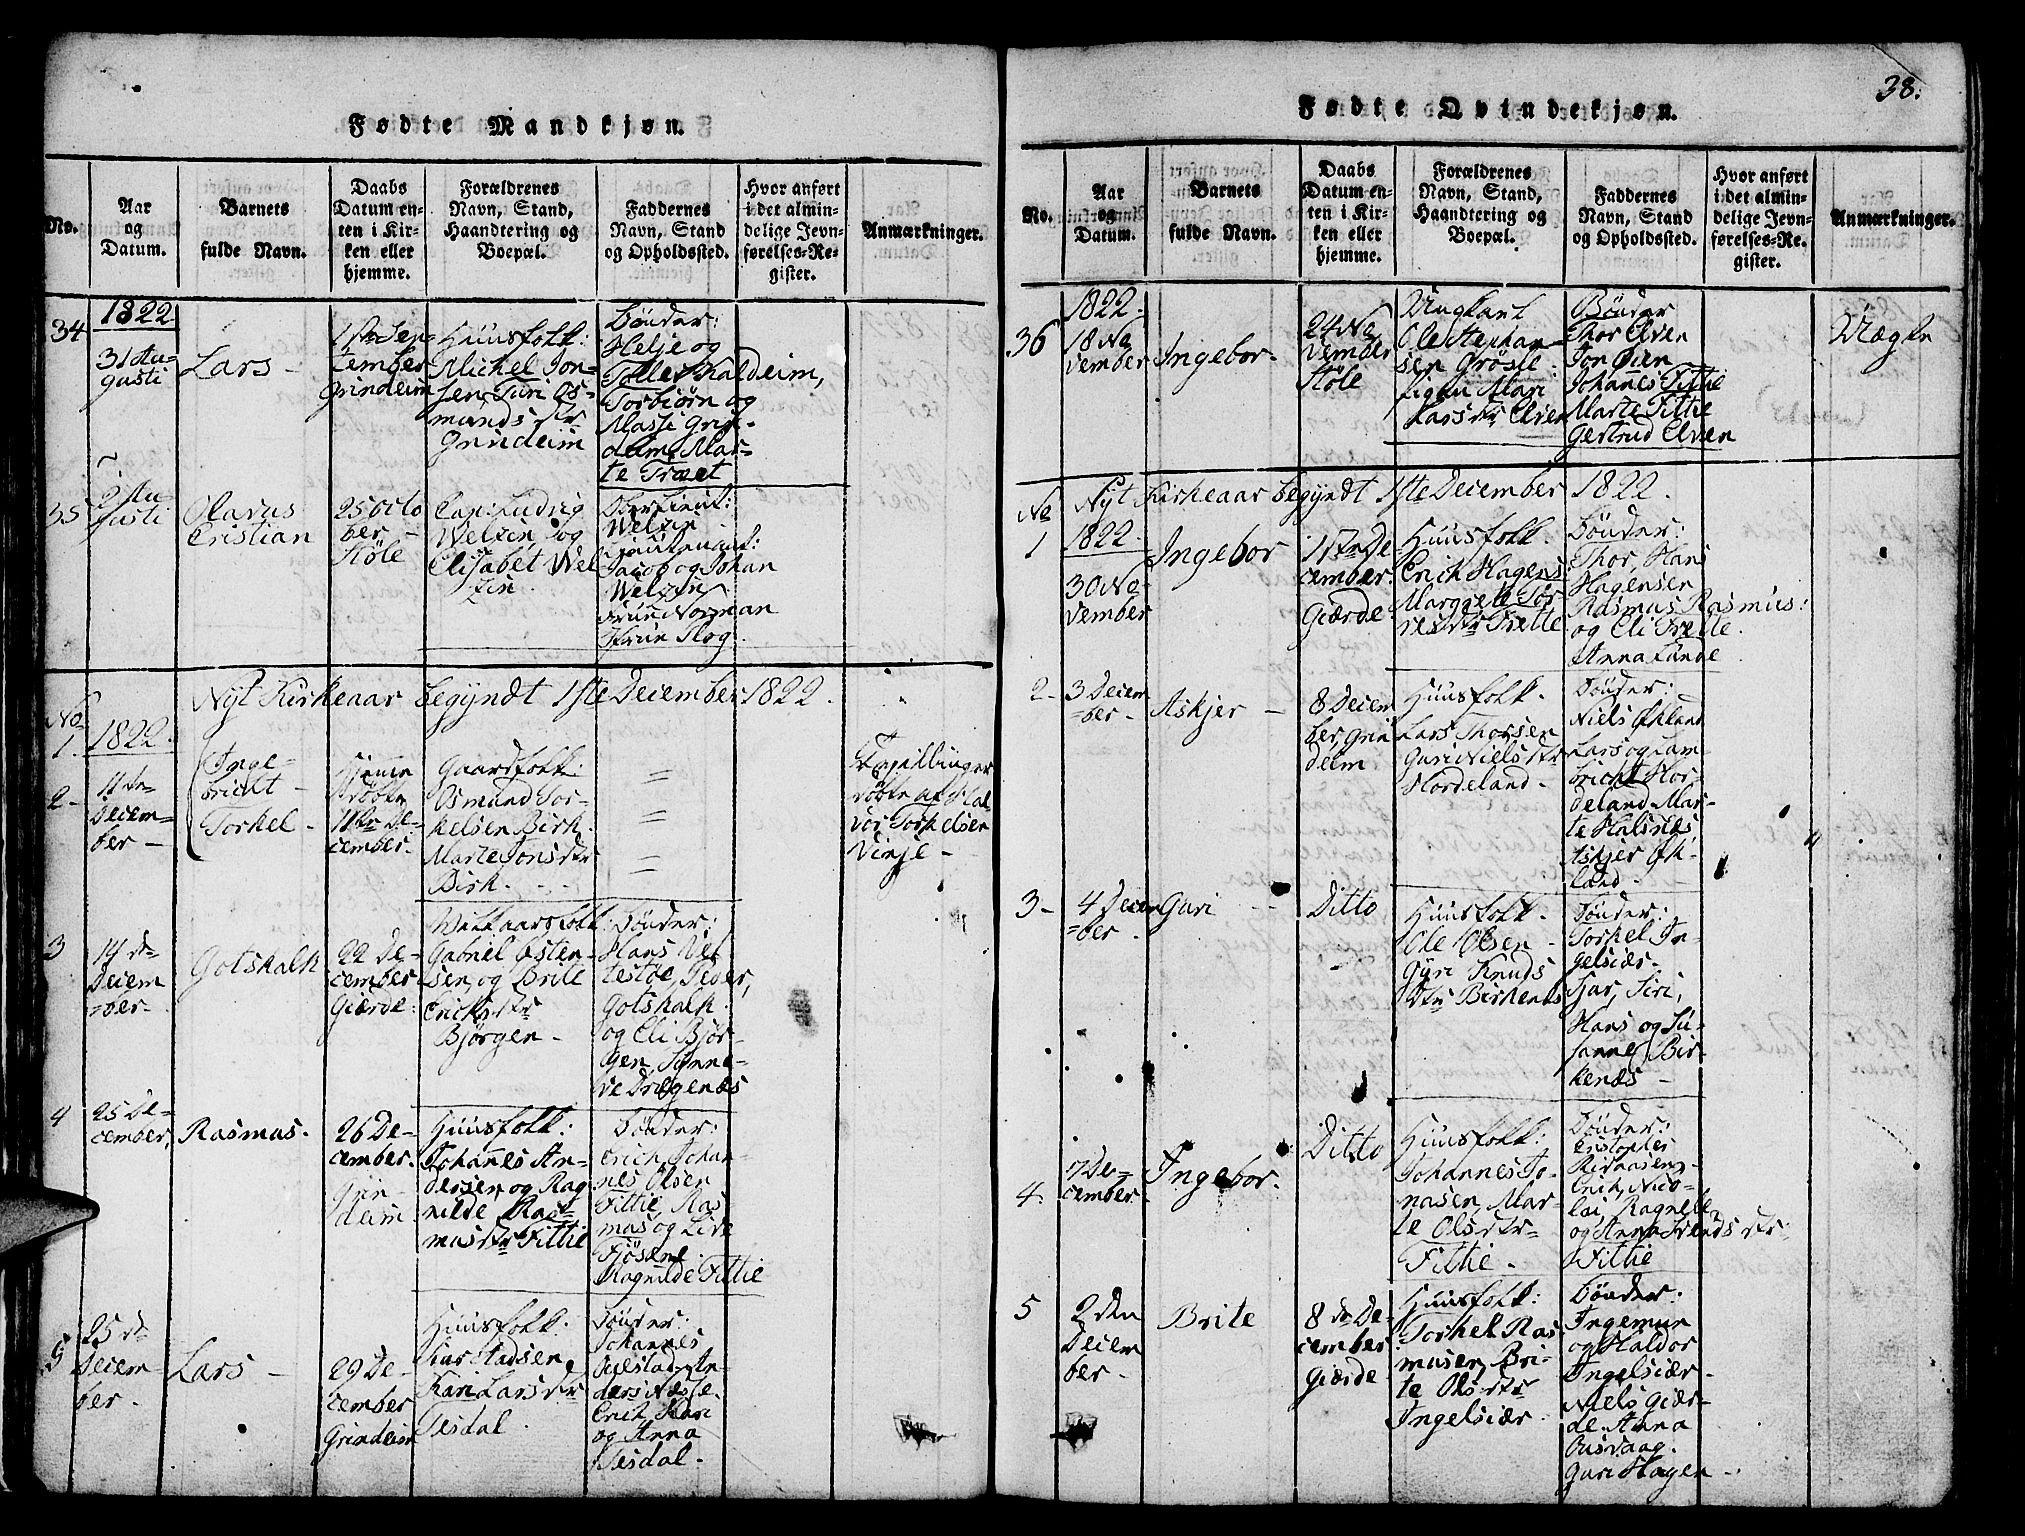 Fødte Mandkjøn.
No.
Aar
og
Datum.
Barnets
fulde Navn.
Daabs
Datum en-
ten i Kir-
ken eller
hjemme.
Forældrenes
Navn, Stand,
Haandtering og
Boepæl.
Faddernes
Navn, Stand
og Opholdssted.
Hvor anført
i det almin-
delige Jevn-
førelses-Re-
gister.
Anmærkninger.
34
1822
31 Au-
gusti
Lars -
1ste Sep-
tember
Grindeim
Huusfolk:
Michel Jon-
sen Turi Os-
munds dtr
Grindeim
Bønder:
Helje og
Torbiørn og
Massi Grin-
deim, Mar-
te Træet
35
2 Au-
gusti
Olavus
Cristian
25 Octo
ber -
Støle
Capt: Ludvig
Welzin og
Elisabet Wel
zin.
Welzin
Jacob og Johan
Welzin
Fruе Norman
Nyt Kirkeaar begyndt 1ste December 1822.
No
1.
1822.
2 -
11 de
Decem-
ber -
Inge-
bricht -
Torkel -
Hjeme
døbte
11te De-
cember.
Gaardfolk:
Osmund Tor-
kelsen Birk.
Marte Jons dtr
Birk.
Tvillinger
døbte af Hal-
vor Torkelsen
Vinje -
3
14 de
Decem
-ber-
Gotskalk
22 De-
cember
Gierde:
Gabriel Østen-
sen og Brite
Erichs dtr
Bjørgen -
Bønder:
Hans Vet-
testøe, Peder,
Gotskalk
og Eli Bjør-
gen, Sønne-
ve Dragenæs
4
25 De-
cember,
Rasmas.
26 De-
cember.
Grin-
deim
Huusfolk:
Johannes An-
dersen og Rag
nilde Ras-
mus dtr Fittie
Bønder:
Erich, Johan-
nes Olsen
Fittie, Ras
mas og Live
Fjösene
Ragnilde Fittie
5
25 de
Decem-
ber.
Lars -
29 De-
cember
Grindeim
Huusfolk:
Kari Lars dtr
Tesdal.
Bønder:
Johannes
Erich, Kari
og Anna
Tesdal -
38.
Fødte Qvindekjøn.
No.
Aar
og
Datum.
Barnets
fulde Navn.
Daabs
Datum en-
ten i Kir-
ken eller
hjemme.
Forældrenes
Navn, Stand,
Haandtering og
Boepæl.
Faddernes
Navn, Stand
og Opholdssted.
Hvor anført
i det almin-
delige Jevn-
førelses-Re-
gister.
Anmærkninger.
36
1822.
18 No
vember
Ingebor.
24 No
vember
Støle
Ungkarl
Ole Stephan-
sen Grösle
Pigen Mari
Lars dtr Elven
Bønder
Thor Elven
Jon Øien
Johannes Fittie
Marte Fittie
Gertrud Elven
Uægte
No
Nyt Kirkeaar begyndt 1ste December 1822.
1
1822.
30 No-
vember
Ingebor
17de De-
cember.
Gierde
Huusfolk.
Erich Hagens:
Margrete Tor
res dtr Frette
Bønder:
Thor, Hans
Hagensen
Rasmus Rasmus:
og Eli Frette.
Anna Lunde
2 -
3 Decem
-ber -
Askjer -
8 Decem
ber, Grin
deim
Huusfolk.
Lars Thorsen
Guri Niels dtr
Hordeland -
Bønder:
Niels Økland
Lars og Lam-
bricht Hor-
deland Mar-
te Halsnes
Askjer Øk-
land -
3 -
4 Decem
-ber.
Guri -
Ditto
Huusfolk.
Ole Olsen
Gyri Knuds
dtr Birkenes
Bønder:
Torkel In-
gelsiær.
Ivar, Siri,
Hans og Su-
sanne Bir-
kenes -
4.
7 De-
cember.
Ingebor.
Ditto
Huusfolk:
Johannes Jo-
nasen, Mar-
te Ols dtr
Fittie -
Bønder:
Cristopher
Erich, Nico-
lai, Ragnelle
og Anna Svends dtr.
Fittie
5
2 den
Decem
ber -
Brite
8 de De-
cember
Gierde
Huusfolk:
Torkel Ras
musen, Bri-
te Ols dtr
Ingelsiær.
Bønder:
Ingemun
og Haldor
Ingelsiær.
Niels Gier-
de Anna
Guri Hagen -